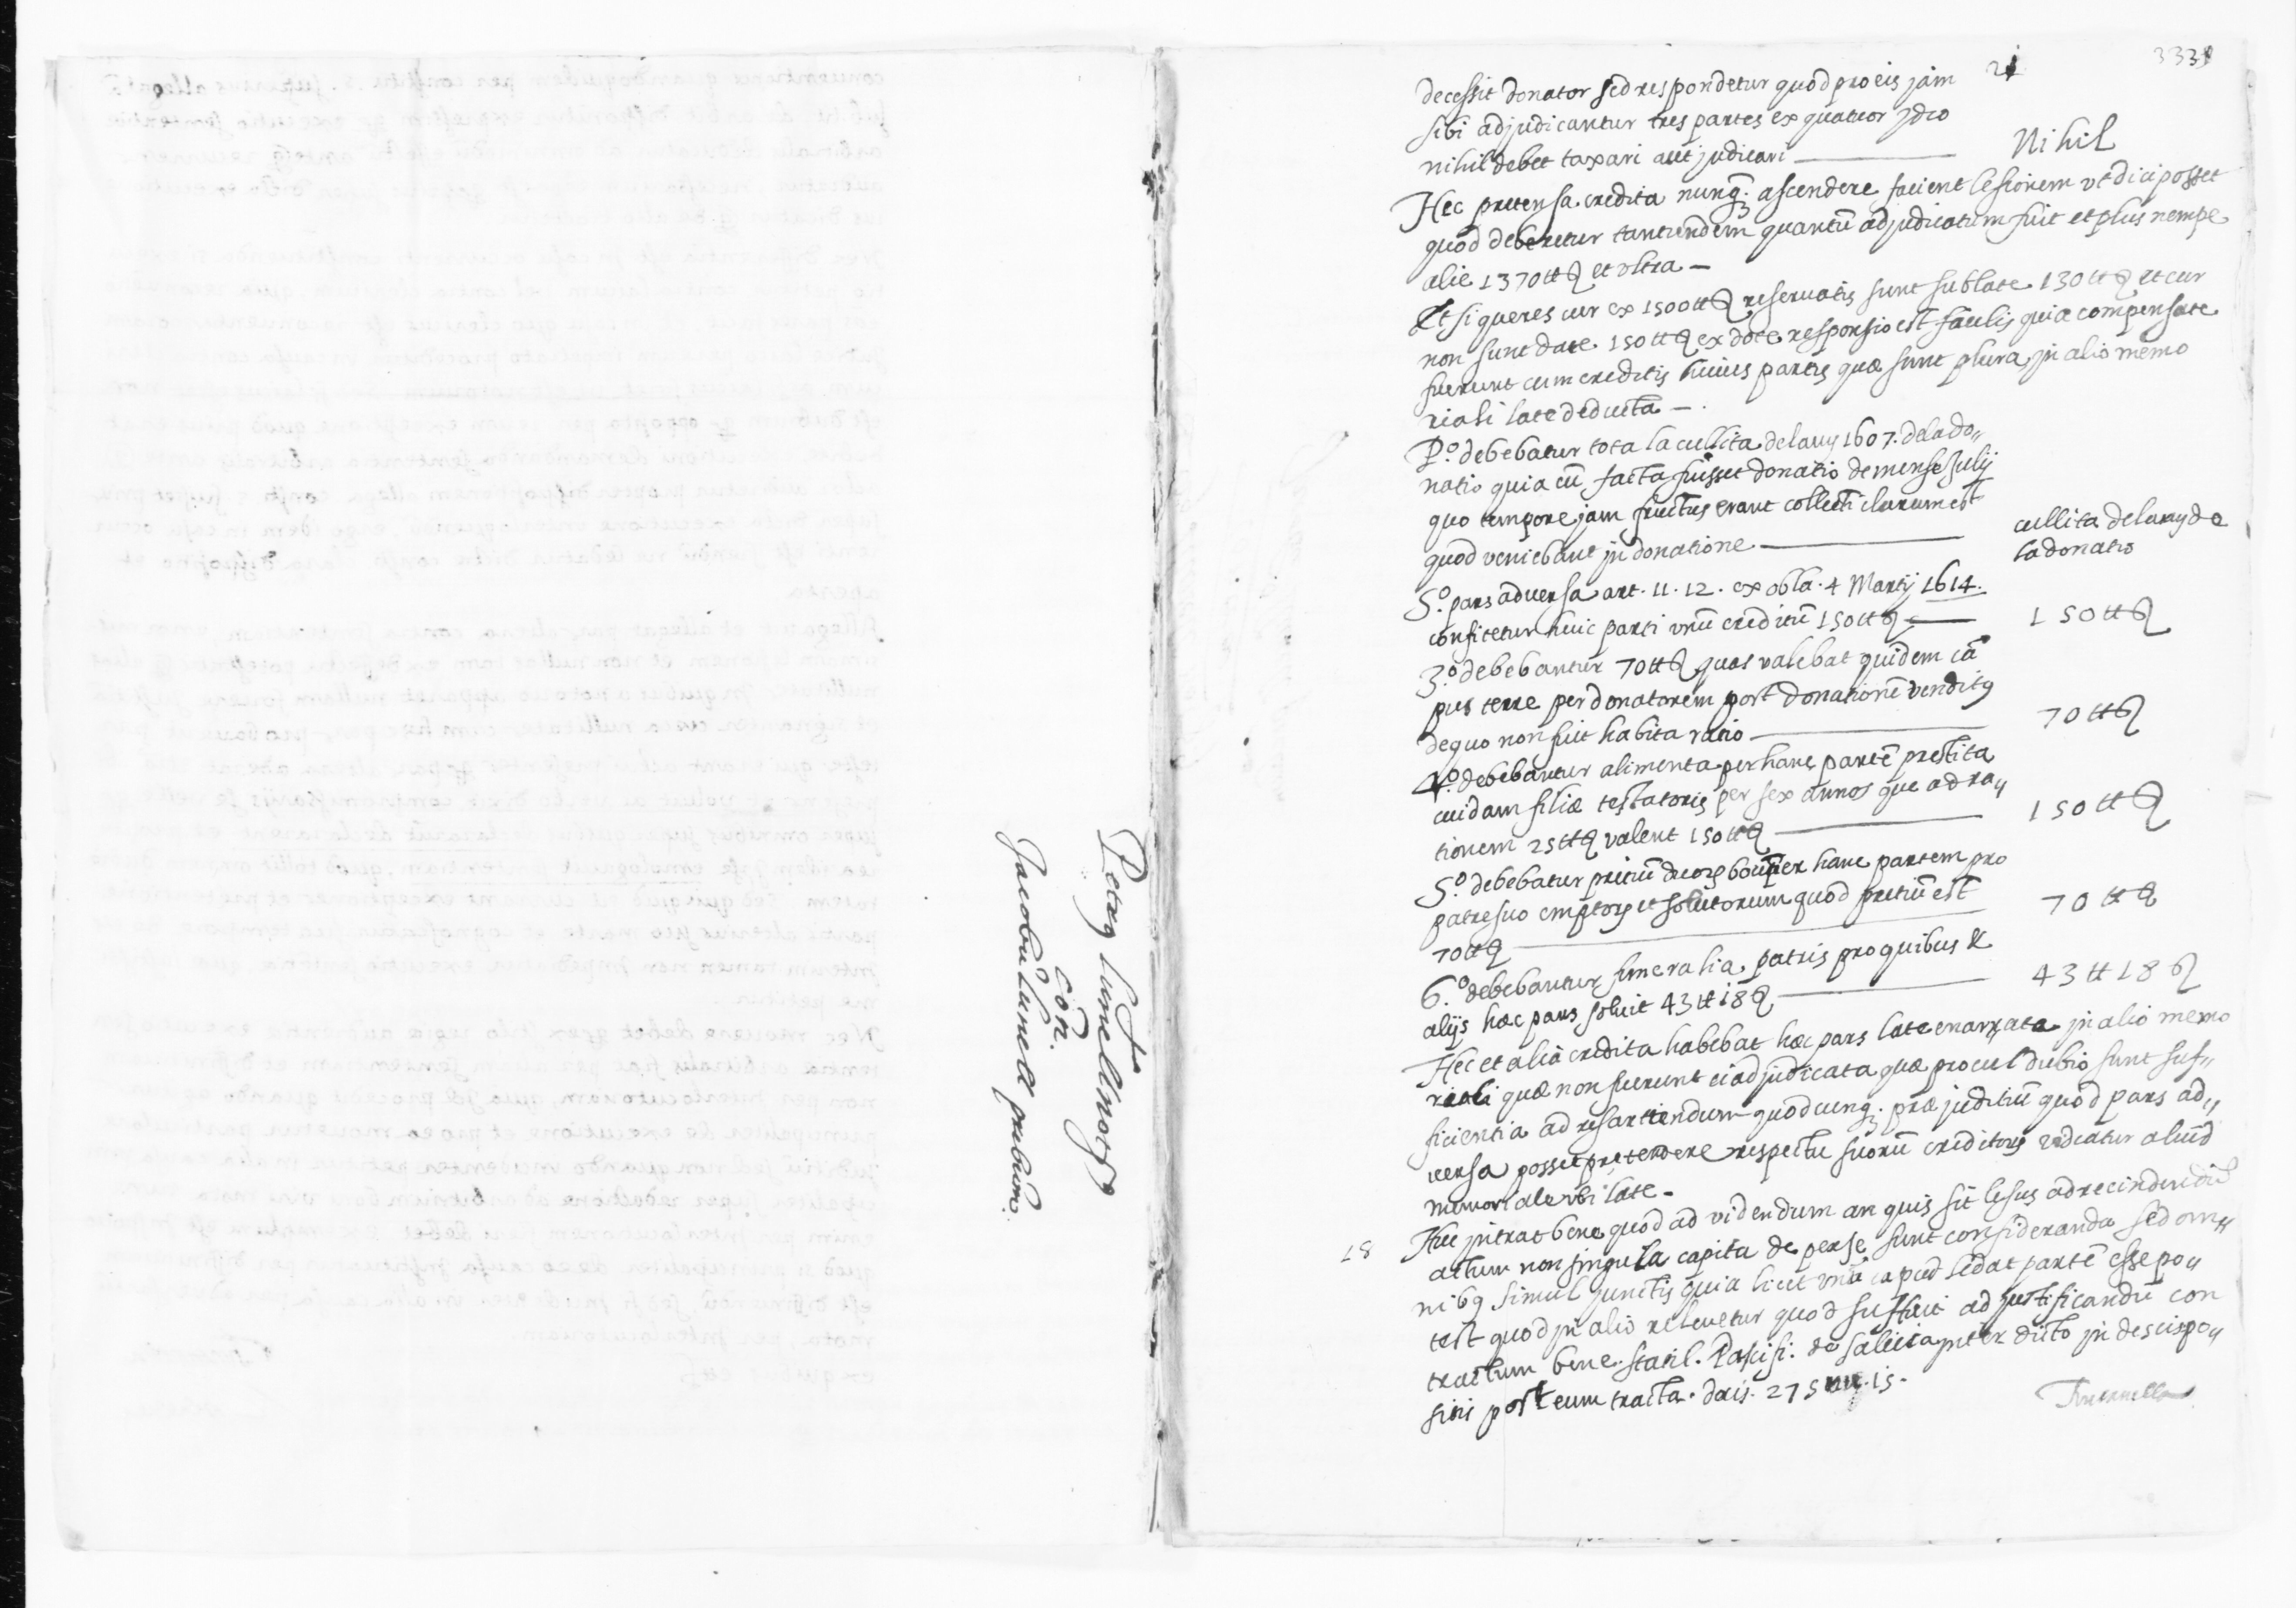 Petrus Lunell notus
con.
Jacobũ Lunell prebirũ.
3339
21
decessit donator sed respondetur quod pro eis jam
sibi adjudicantur tres partes ex quatuor jdeo
nihil debet taxari aut judicari — Nihil
Hec pretensa credita nunq3. ascendere facient lesionem vt dici posset
quod deberetur tantundem quantũ adjudicatum fuit et plus nempe
alie 1370 tt et vltra —
Et si queres cur ex 1500 tt reseruatis sunt sublate 130 tt et cur
non sunt date 150 tt ex dote responsio est facilis quia compensate
fuerunt cum creditis huius partis quæ sunt plura jn alio memo
riali late deducta — .
P.º debebatur tota la cullita delany 1607. dela do„
natio quia cũ facta fuisset donatio de mense Julij
quo tempore jam fructus erant collecti clarum est
quod veniebant jn donatione — cullita delany de
la donatio
S.º pars aduersa art. 11. 12. ex obla. 4 Martij 1614.
confitetur huic parti vnũ creditũ 150 tt — 150 tt
3.º debebantur 70 tt quas valebat quidem cã
pus terre per donatorem post donationẽ venditus
de quo non fuit habita ratio — 70 tt
4.º debebantur alimenta per hanc partẽ prestita
cuidam filiæ testatoris per sex annos que ad ra„
tionem 25 tt valent 150 tt — 150 tt
5.º debebatur pretiũ duorum boum per hanc partem pro
patre suo emptorum et solutorum quod pretiũ est
70 tt — 70 tt
6.º debebantur funeralia patris pro quibus &
alijs hæc pars soluit 43 tt 18 — 43 tt 18
Hec et alia credita habebat hæc pars late enarrata jn alio memo
riali quæ non fuerunt ei adjudicata quæ procul dubio sunt suf„
ficientia ad resartiendum quodcunq3. præjuditiũ quod pars ad„
uersa posset pretendere respectu suorũ creditorum videatur aliud
memoriale vbi late -
18 Hic jntrat bene quod ad videndum an quis sit lesus ad recindendũ
actum non singula capita de per se sunt consideranda sed om„
nibus simul junctis quia licet vnũ caput ledat partẽ esse po„
test quod jn alio releuetur quod sufficit ad justificandũ con
tractum bene. Staril. Pacifi. de Salutano jnterdicto jn descispo„
sitis post eum tracta. dois. 275 nu. 15.